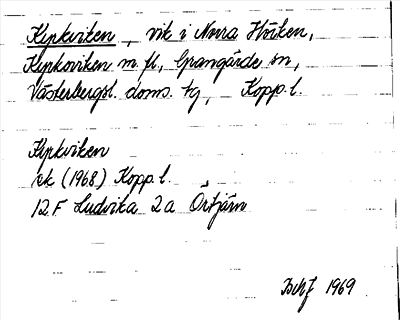 Kyrkviken, vik i Norra Hörken,
Kyrkoviken m. fl., Grangärde sn,
Västerbergsl. doms. tg, Kopp. l.
Kyrkviken
ek (1968) Kopp. l.
12 F Ludvika 2a Örtjärn
1969